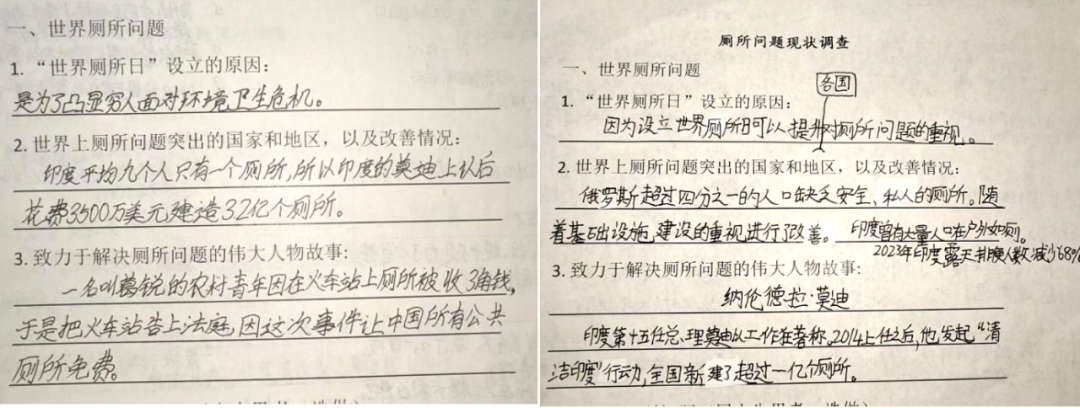 一、世界厕所问题
1. “世界厕所日”设立的原因：
是为了凸显穷人面对环境卫生危机。
2. 世界上厕所问题突出的国家和地区，以及改善情况：
印度平均九个人只有一个厕所，所以印度的莫迪上认后
花费3500万美元建造3.2亿个厕所。
3. 致力于解决厕所问题的伟大人物故事：
一名叫葛锐的农村青年因在火车站上厕所被收3角钱，
于是把火车站告上法庭，因这次事件让中国所有公共
厕所免费。
厕所问题现状调查
一、世界厕所问题
各国
1. “世界厕所日”设立的原因：
因为设立世界厕所日可以提升对厕所问题的重视。
2. 世界上厕所问题突出的国家和地区，以及改善情况：
俄罗斯超过四分之一的人口缺乏安全，私人的厕所。随
着基础设施建设的重视进行了改善。印度曾有大量人口在户外如厕。
2023年印度露天排便人数减少68%
3. 致力于解决厕所问题的伟大人物故事：
纳伦德拉·莫迪
印度第十五任总理莫迪以工作狂著称。2014上任之后，他发起“清
洁印度”行动，全国新建了超过一亿个厕所。